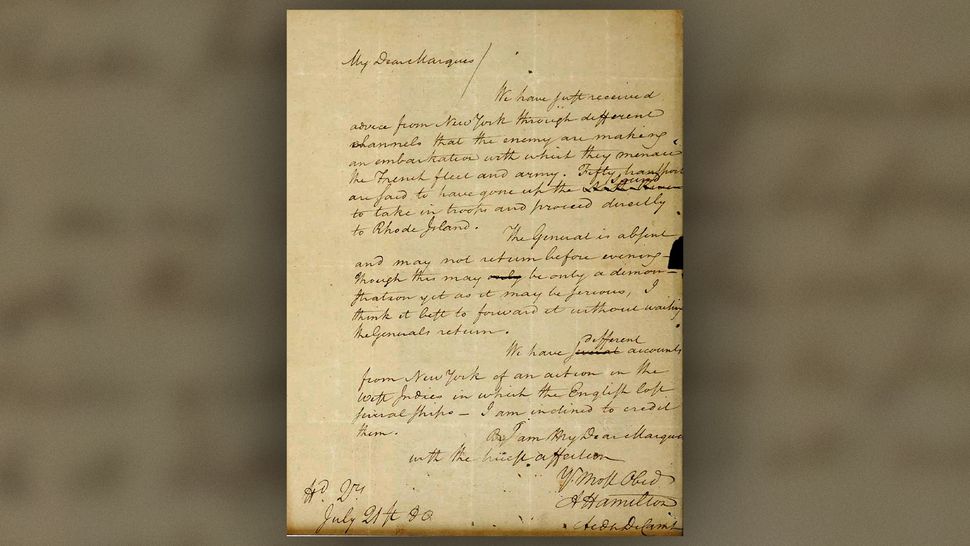 My Dear Marquis/
We have just received
advice from New York through different
channels that the enemy are making
an embarkation with which they menace
the French fleet and army. Fifty transports
are said to have gone up the Sound
to take in troops and proceed directly
to Rhode Island.
The General is absent
and may not return before evening—
Though this may only be only a demon-
stration yet as it may be serious, I
think it best to forward it without waiting
the Generals return.
different
We have several accounts
from New York of an action in the
West Indies in which the English lost
several ships — I am inclined to credit
them.
I am My Dear Marquis
with the truest affection
Yr. Most Obed
A Hamilton
Aide De Camp
Hd Qrs
July 21st 80